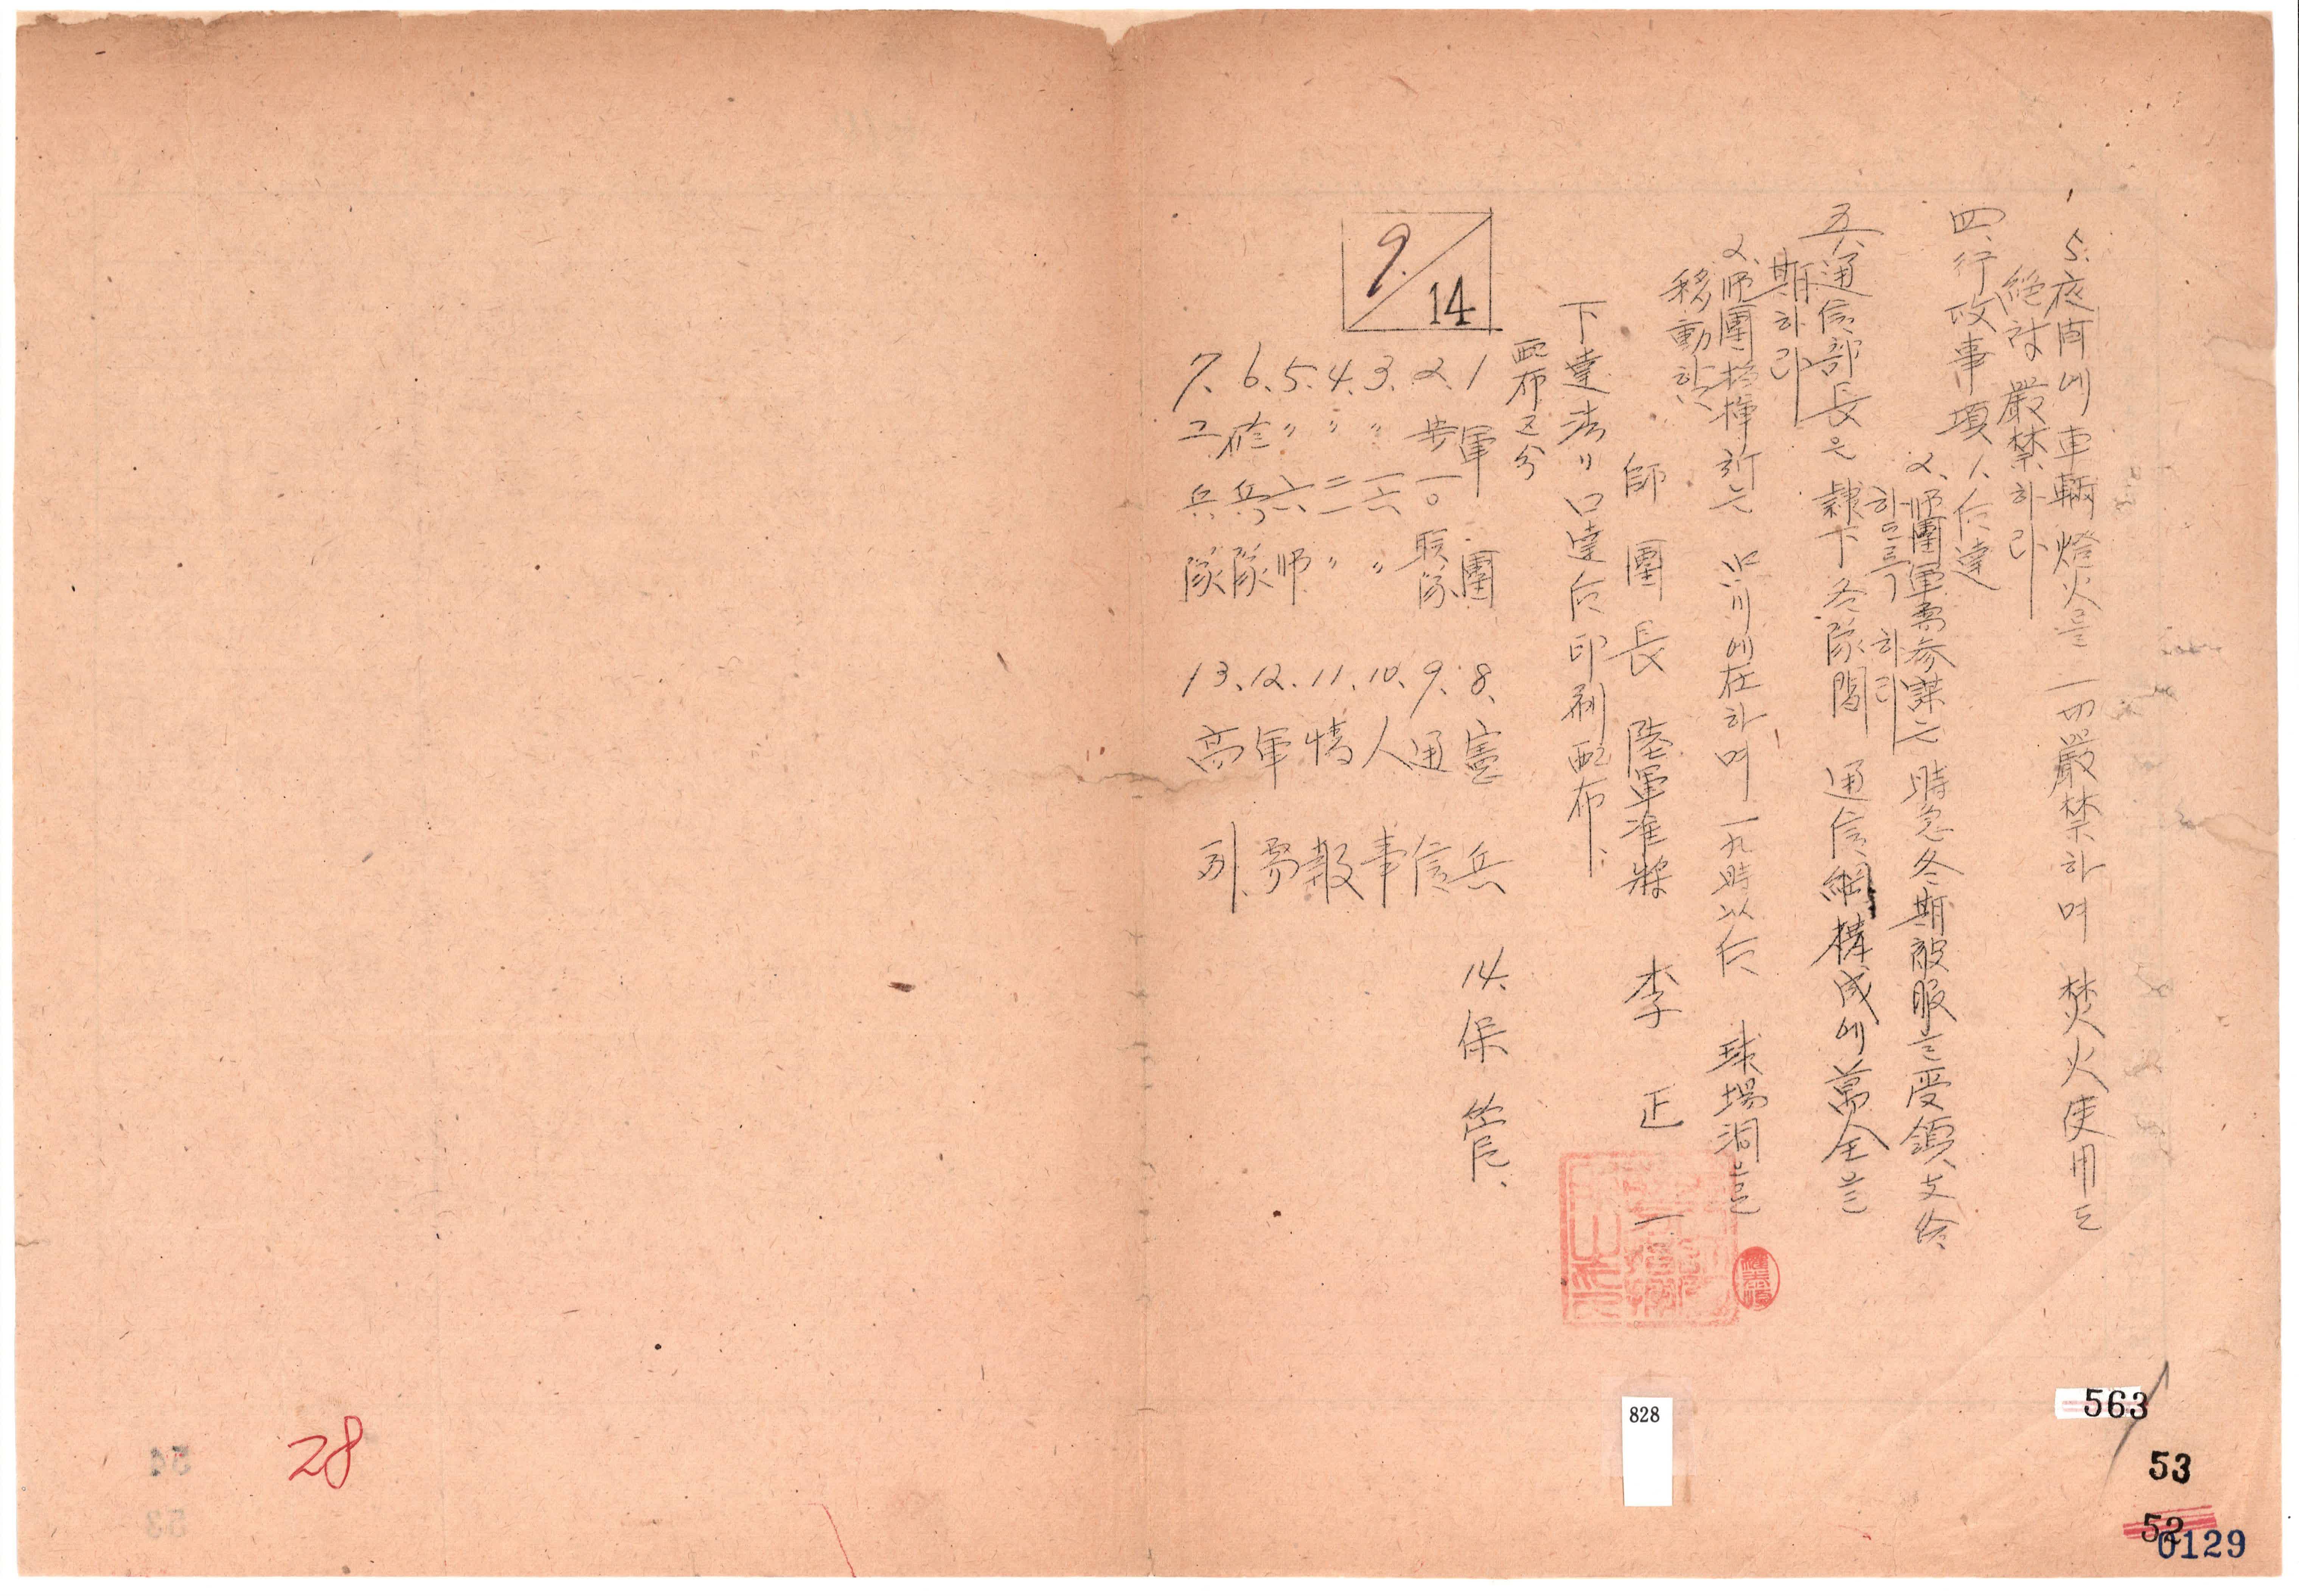 5. 夜間에 車輛燈火를 一切嚴禁하며 焚火使用도
絶対 嚴禁하라
四、行政事項 1、后達
2、師團軍需参謀는 時急 冬期被服을 受領、支給
하도록 하라
五、1、通信部長은 隷下 各隊間 通信網構成에 萬全을
期하라
2、師團指揮所는 价川에 在하며 一九時以后 球場洞으로
移動함
師團長 陸軍准将 李正一
下達法 口達后印刷配布、
配布区分
1 軍團
2、步一〇聯隊
3、〃 一六 〃
4、〃 二一 〃
5、〃 六师
6、砲兵隊
7、工兵隊
8、憲兵
9、通信
10、人事
11、情報
12、軍需
13、高列
14、保管、
9/14
28
828
563
53
52
0129